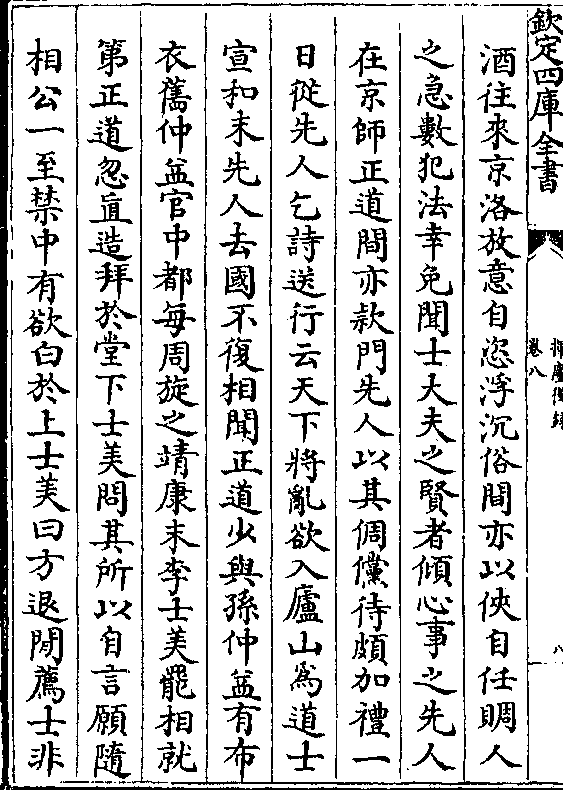 欽定四庫全書
揮麈後錄
卷八
八
酒往來京洛放意自恣浮沉俗間亦以俠自任賙人
之急數犯法幸免聞士大夫之賢者傾心事之先人
在京師正道間亦款門先人以其倜儻待頗加禮一
日從先人乞詩送行云天下將亂欲入廬山為道士
宣和末先人去國不復相聞正道少與孫仲益有布
衣舊仲益官中都每周旋之靖康末李士美罷相就
第正道忽直造拜於堂下士美問其所以自言願隨
相公一至禁中有欲白於上士美曰方退閒薦士非